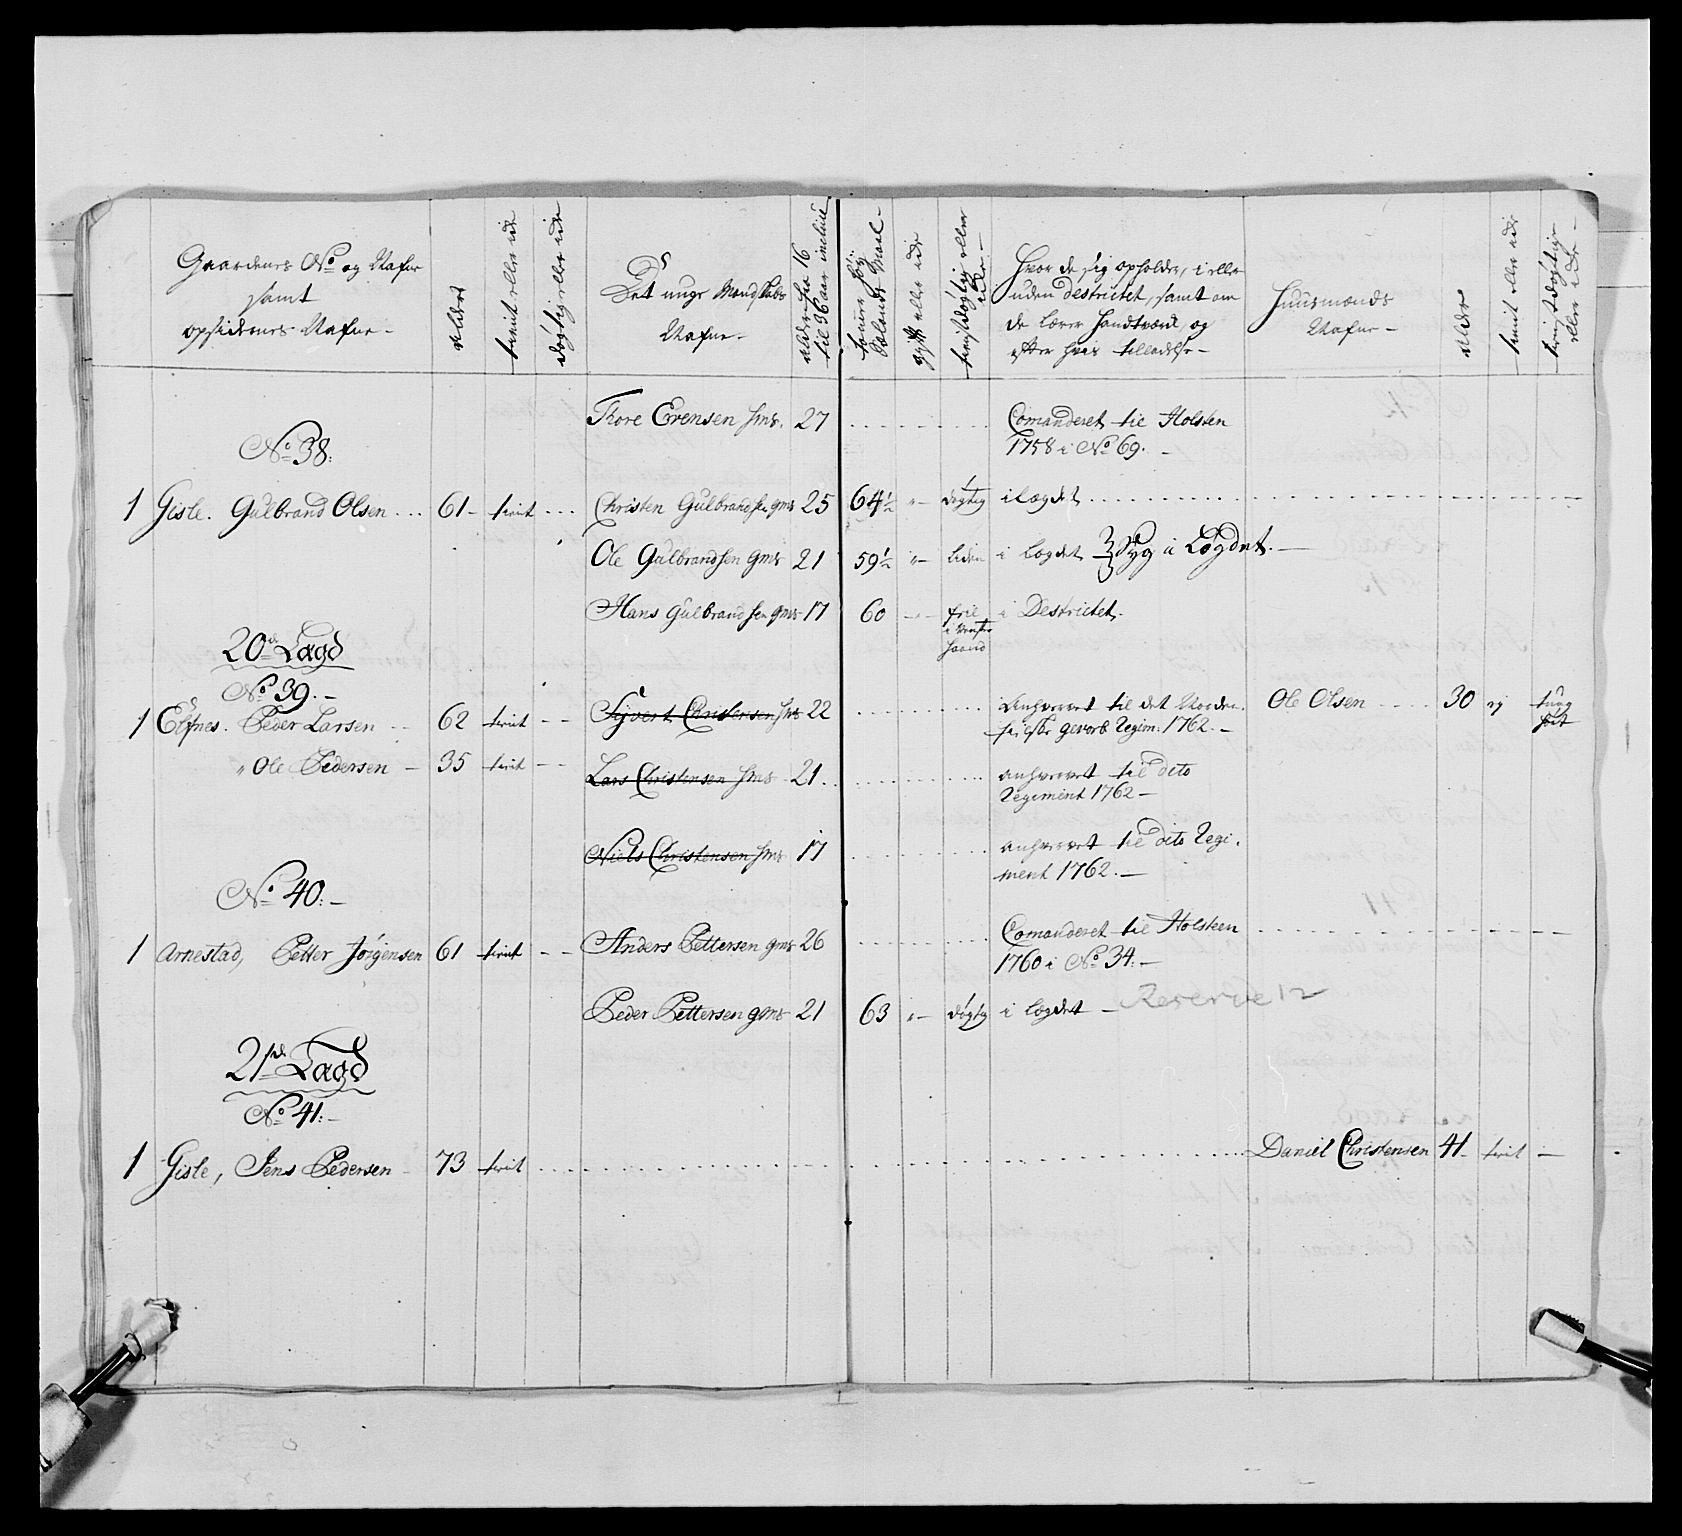 Gaardenes No og Nafne
samt
opsidernes Nafne -
Alder
tient eller ei
døgtig eller ei
Det unge Mandskabs
Nafne -
Alder fra 16
til 36 aar inclus
Maal
gift eller ei
tienstdøgtig eller
Hvor de sig opholder, i eller
uden destrictet, samt om
de lærer Handtværk, og
efter hvis tilladelse -
Huusmænds
Nafne -
Alder
tient eller ei
tienstdøgtige
eller
Thore Evensen hms. 27 Comanderet til Holsten
1758 i No 69. -
No 38:
1 Gisle. Gulbrand Olsen ... 61 - tient ... Christen Gulbrandsen gms 25 64½ " - døgtig i lægdet
Ole Gulbrandsen gms 21 59½ " - liden i lægdet Syg i Lægdet. -
Hans Gulbrandsen gms 17 60 i Destrictet.
haand
20de Lægd
No 39. -
1 Elfnes. Peder Larsen 62 tient - - Sivert Christensen hms 22 Anhvervet til det Norden
gevorb Regim: 1762. - Ole Olsen 30 ej
" Ole Pedersen - 35 tient - - Lars Christensen hms 21 anhvervet til dito
Regiment 1762 -
Niels Christensen hms 17 anhvervet til dito Regi-
ment 1762. -
No 40: -
1 Arnestad, Petter Jørgensen 61 tient - - Anders Pettersen gms 26 Comanderet til Holsteen
1760 i No 34: -
Peder Pettersen gms 21 63 " - døgtg i lægdet - Reserve 12
21de Lægd
No 41: -
1 Gisle, Jens Pedersen 73 tient Daniel Christensen 41 - tient -